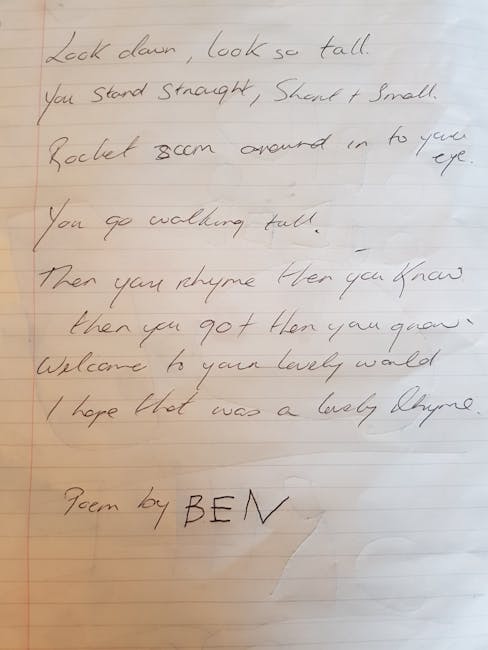 Look down, look so tall.
You stand straught, Short + Small.
Rocket zoom around in to your
eye.
You go walking tall.
Then your rhyme then you know
then you got then you grow.
Welcome to your lovely world
I hope that was a lovely Rhyme.
Poem by BEN